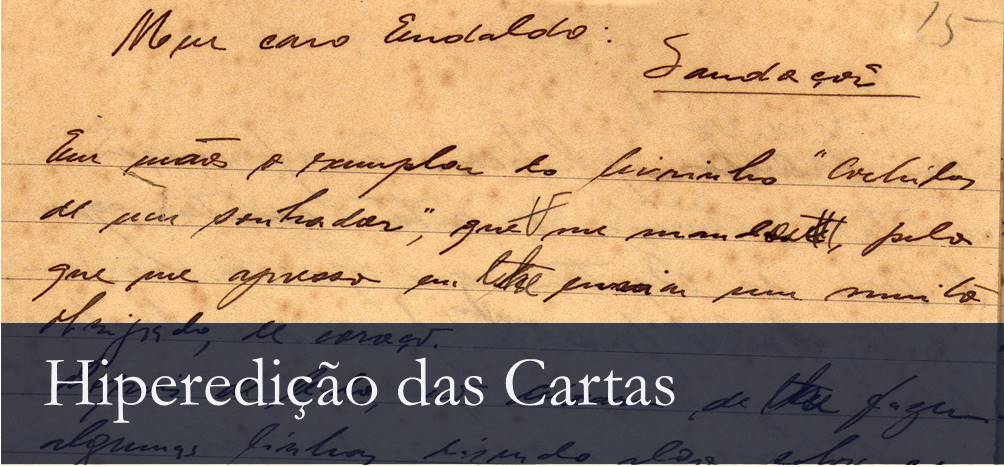 15
Meu caro Eudaldo:
Saudações
Em mãos o exemplar do livrinho "Cochilos
de um sonhador", que V me mandou, pelo
que me apresso em lhe enviar um muito
obrigado, de coração.
Hiperedição das Cartas
de lhe fazer
algumas linhas dizendo